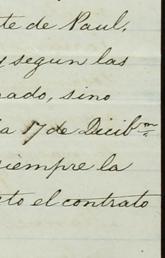 te de Paul,
y segun las
ado, sino
a 17 de Dicibm̅
siempre la
cto el contrato